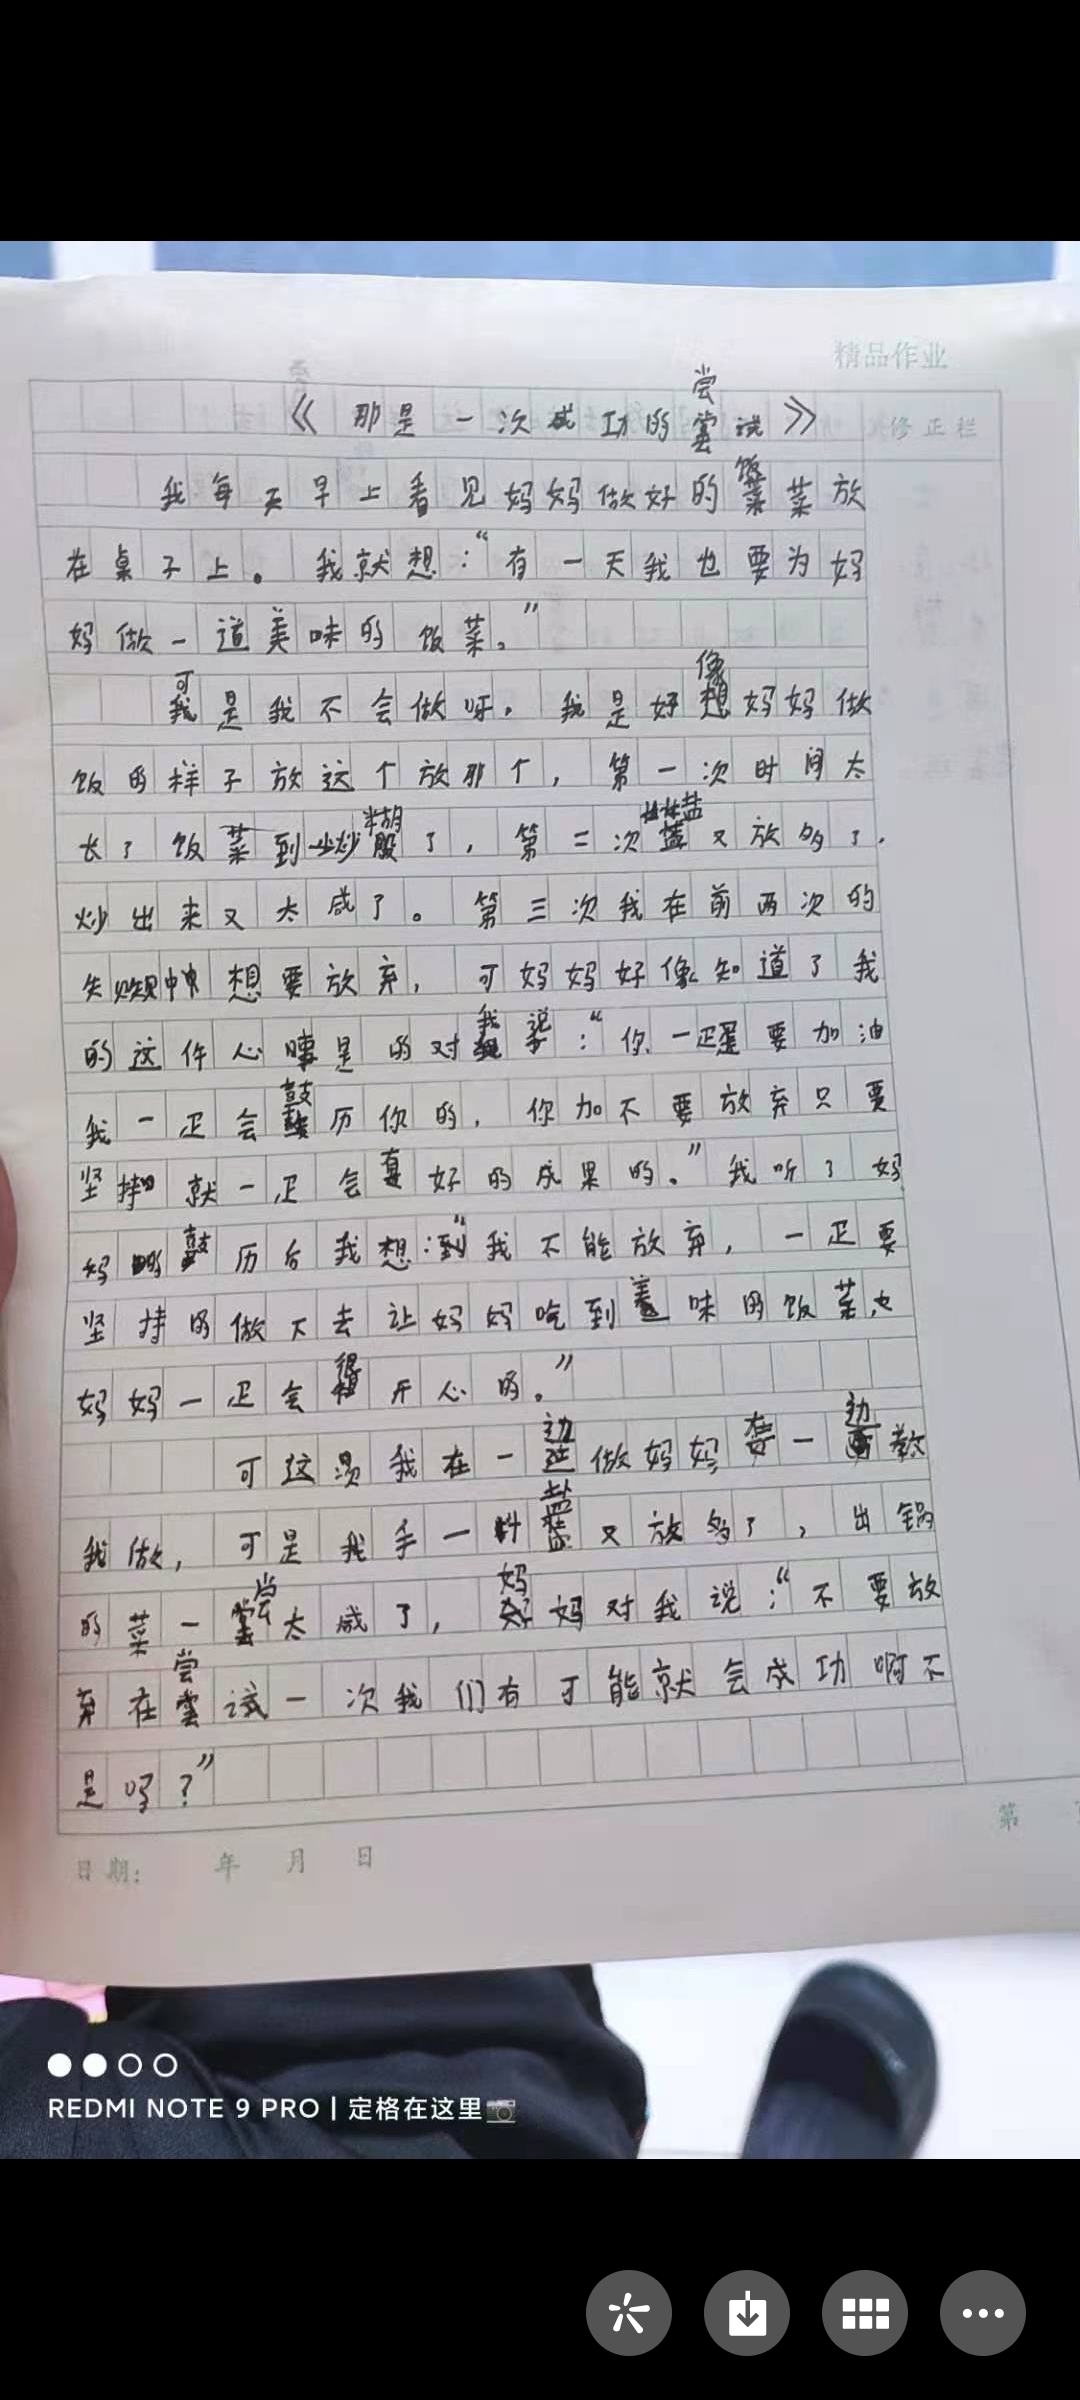 精品作业
《那是一次成功的尝试》
修正栏
我每天早上看见妈妈做好的饭菜放
在桌子上。我就想:“有一天我也要为妈
妈做一道美味的饭菜。”
可是我不会做呀。我是好像妈妈做
饭的样子放这个放那个,第一次时间太
长了饭菜到炒糊了,第二次盐又放多了,
炒出来又太咸了。第三次我在前两次的
失败中想要放弃,可妈妈好像知道了我
的这件心事是的对我说:“你一定要加油
我一定会鼓历你的,你加不要放弃只要
坚持就一定会有好的成果的。”我听了妈
妈的鼓历后我想:“我不能放弃,一定要
坚持的做下去让妈妈吃到美味的饭菜,
妈妈一定会很开心的。”
可这次我在一边做妈妈在一边教
我做,可是我手一抖盐又放多了,出锅
的菜一尝太咸了,妈妈对我说:“不要放
弃在尝试一次我们有可能就会成功啊不
是吗?”
第
日期: 年 月 日
REDMI NOTE 9 PRO | 定格在这里